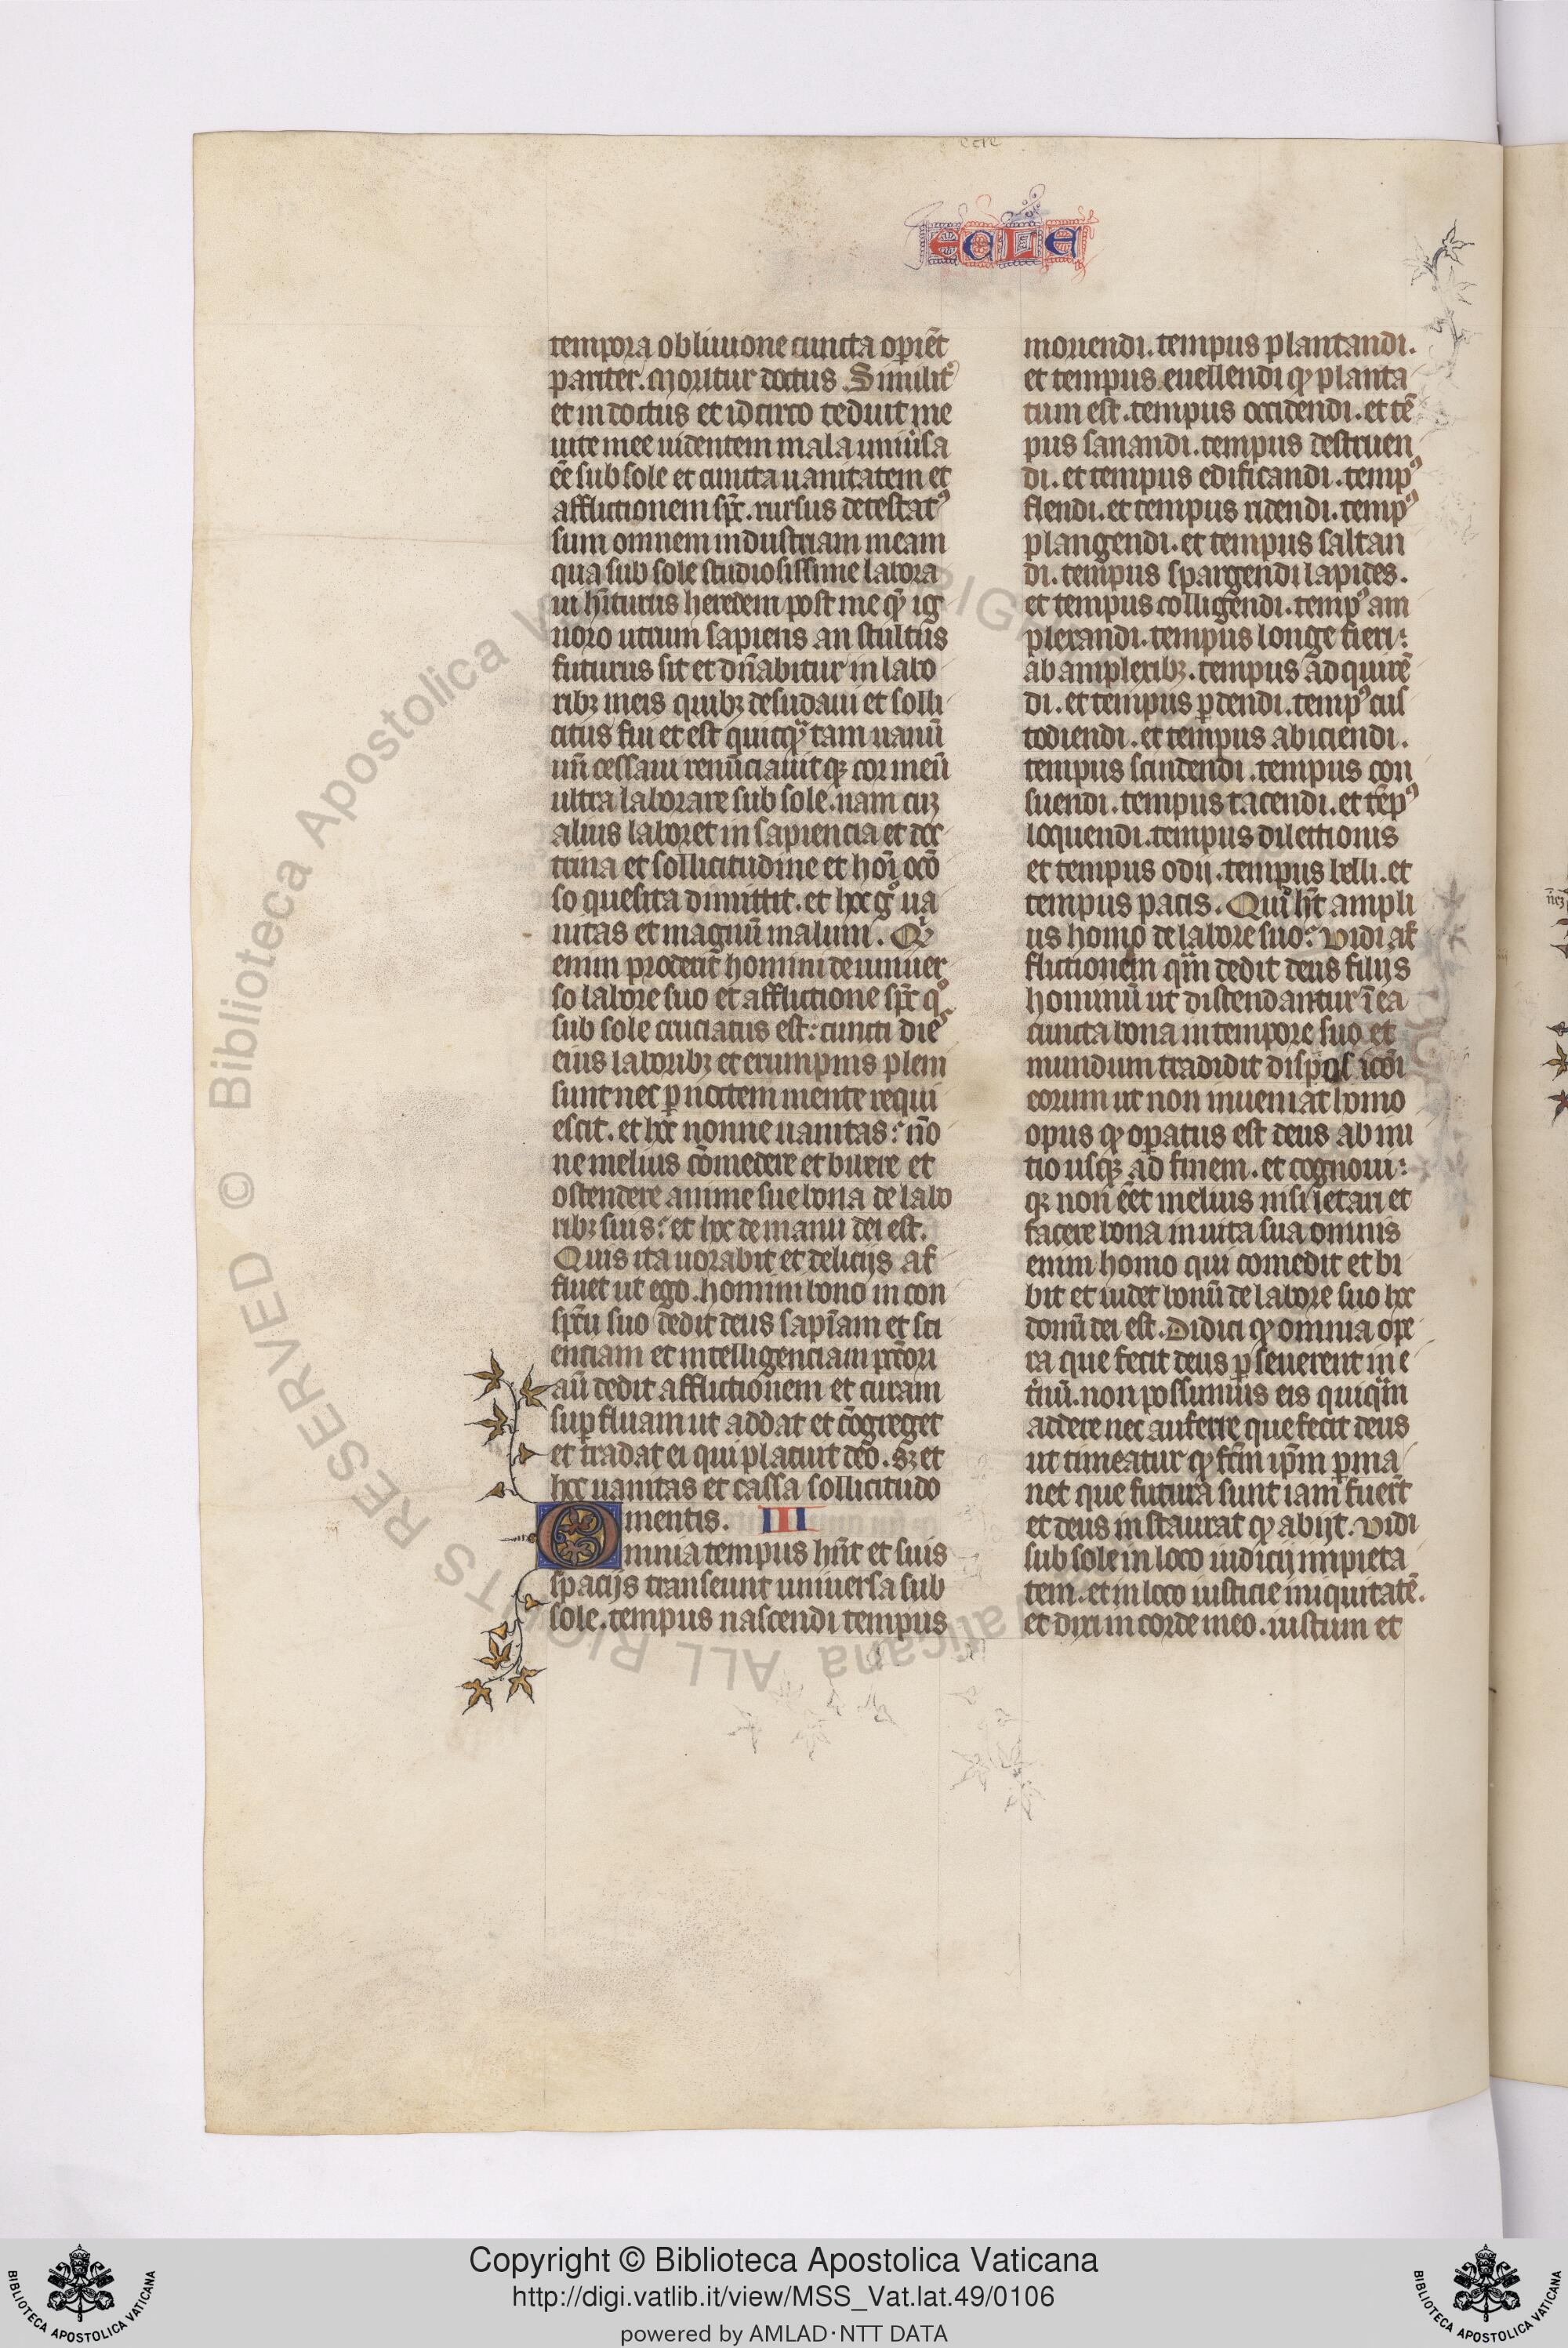 ecce
ECLE
tempora obliuione cuncta opiēt
pariter. Moritur doctus Similit᷑
et indoctus et idcirco teduit me
uite mee uidentem mala uniu᷑sa
eē sub sole et cuncta uanitatem et
afflictionem spc̄. rursus detestatꝰ
sum omnem industriam meam
qua sub sole studiosissime labora
ui hīturus heredem post me qͫ ig
noro utrum sapiens an stultus
futurus sit et dn̄abitur in labo
ribꝫ meis quibꝫ desudaui et solli
citus fui et est quicqͣ tam uanū
un̄ cessaui renūciauitqꝫ cor meū
ultra laborare sub sole. nam cuꝫ
alius laboret in sapiencia et doc
trina et sollicitudine et hoī ocō
so quesita dimittit. et hoc gͦ ua
nitas et magnū malum. Qͥd
enim proderit homini de uniuer
so labore suo et afflictione spc̄ qͣ
sub sole cruciatus est: cuncti dies
eius laboribꝫ et erumpnis pleni
sunt nec p noctem mente requi
escit. et hoc nonne uanitas: nō
ne melius cōmedere et bibere et
ostendere anime sue bona de labo
ribꝫ suis: et hoc de manu dei est.
Quis ita uorabit et delicijs af
fluet ut ego. homini bono in con
spc̄u suo dedit deus sapīam et sci
enciam et intelligenciam pcc̄ori
aū dedit afflictionem et curam
supfluam ut addat et cōgreget
et tradat ei qui placuit deo. sꝫ et
hoc uanitas et cassa sollicitudo
mentis. III
Omnia tempus hn̄t et suis
spacijs transeunt uniuersa sub
sole. tempus nascendi tempus
moriendi. tempus plantandi.
et tempus euellendi qͩ planta
tum est. tempus occidendi. et tē
pus sanandi. tempus destruen
di. et tempus edificandi. tempꝰ
flendi. et tempus ridendi. tempꝰ
plangendi. et tempus saltan
di. tempus spargendi lapides.
et tempus colligendi. tempꝰ am
plexandi. tempus longe fieri:
ab amplexibꝫ. tempus adquirē
di. et tempus pdendi. tempꝰ cus
todiendi. et tempus abiciendi.
tempus scindendi. tempus con
suendi. tempus tacendi. et tēpꝰ
loquendi. tempus dilectionis
et tempus odij. tempus belli. et
tempus pacis. Quͥd hēt ampli
us homo de labore suo: Vidi af
flictionem qͣm dedit deus filijs
hominū ut distendantur ī ea
cuncta bona in tempore suo et
mundum tradidit dispos icōi
eorum ut non inueniat homo
opus qͩ opatus est deus ab ini
tio usqꝫ ad finem. et cognoui:
qꝫ non eēt melius nisi letari et
facere bona in uita sua omnis
enim homo qui comedit et bi
bit et uidet bonū de labore suo hoc
donū dei est. Didici qͩ omnia ope
ra que fecit deus pseuerent in e
t᷑nū. non possumus eis quicqͣm
addere nec auferre que fecit deus
ut timeatur qͩ fcm̄ ipm̄ pma
net que futura sunt iam fuert̄
et deus instaurat qͩ abijt. Vidi
sub sole in loco iudicij impieta
tem. et in loco iusticie iniquitatē.
et dixi in corde meo. iustum et
© Biblioteca Apostolica Vaticana ALL RIGHTS RESERVED
Copyright © Biblioteca Apostolica Vaticana
http://digi.vatlib.it/view/MSS_Vat.lat.49/0106
powered by AMLAD·NTT DATA
BIBLIOTECA APOSTOLICA VATICANA
BIBLIOTECA APOSTOLICA VATICANA